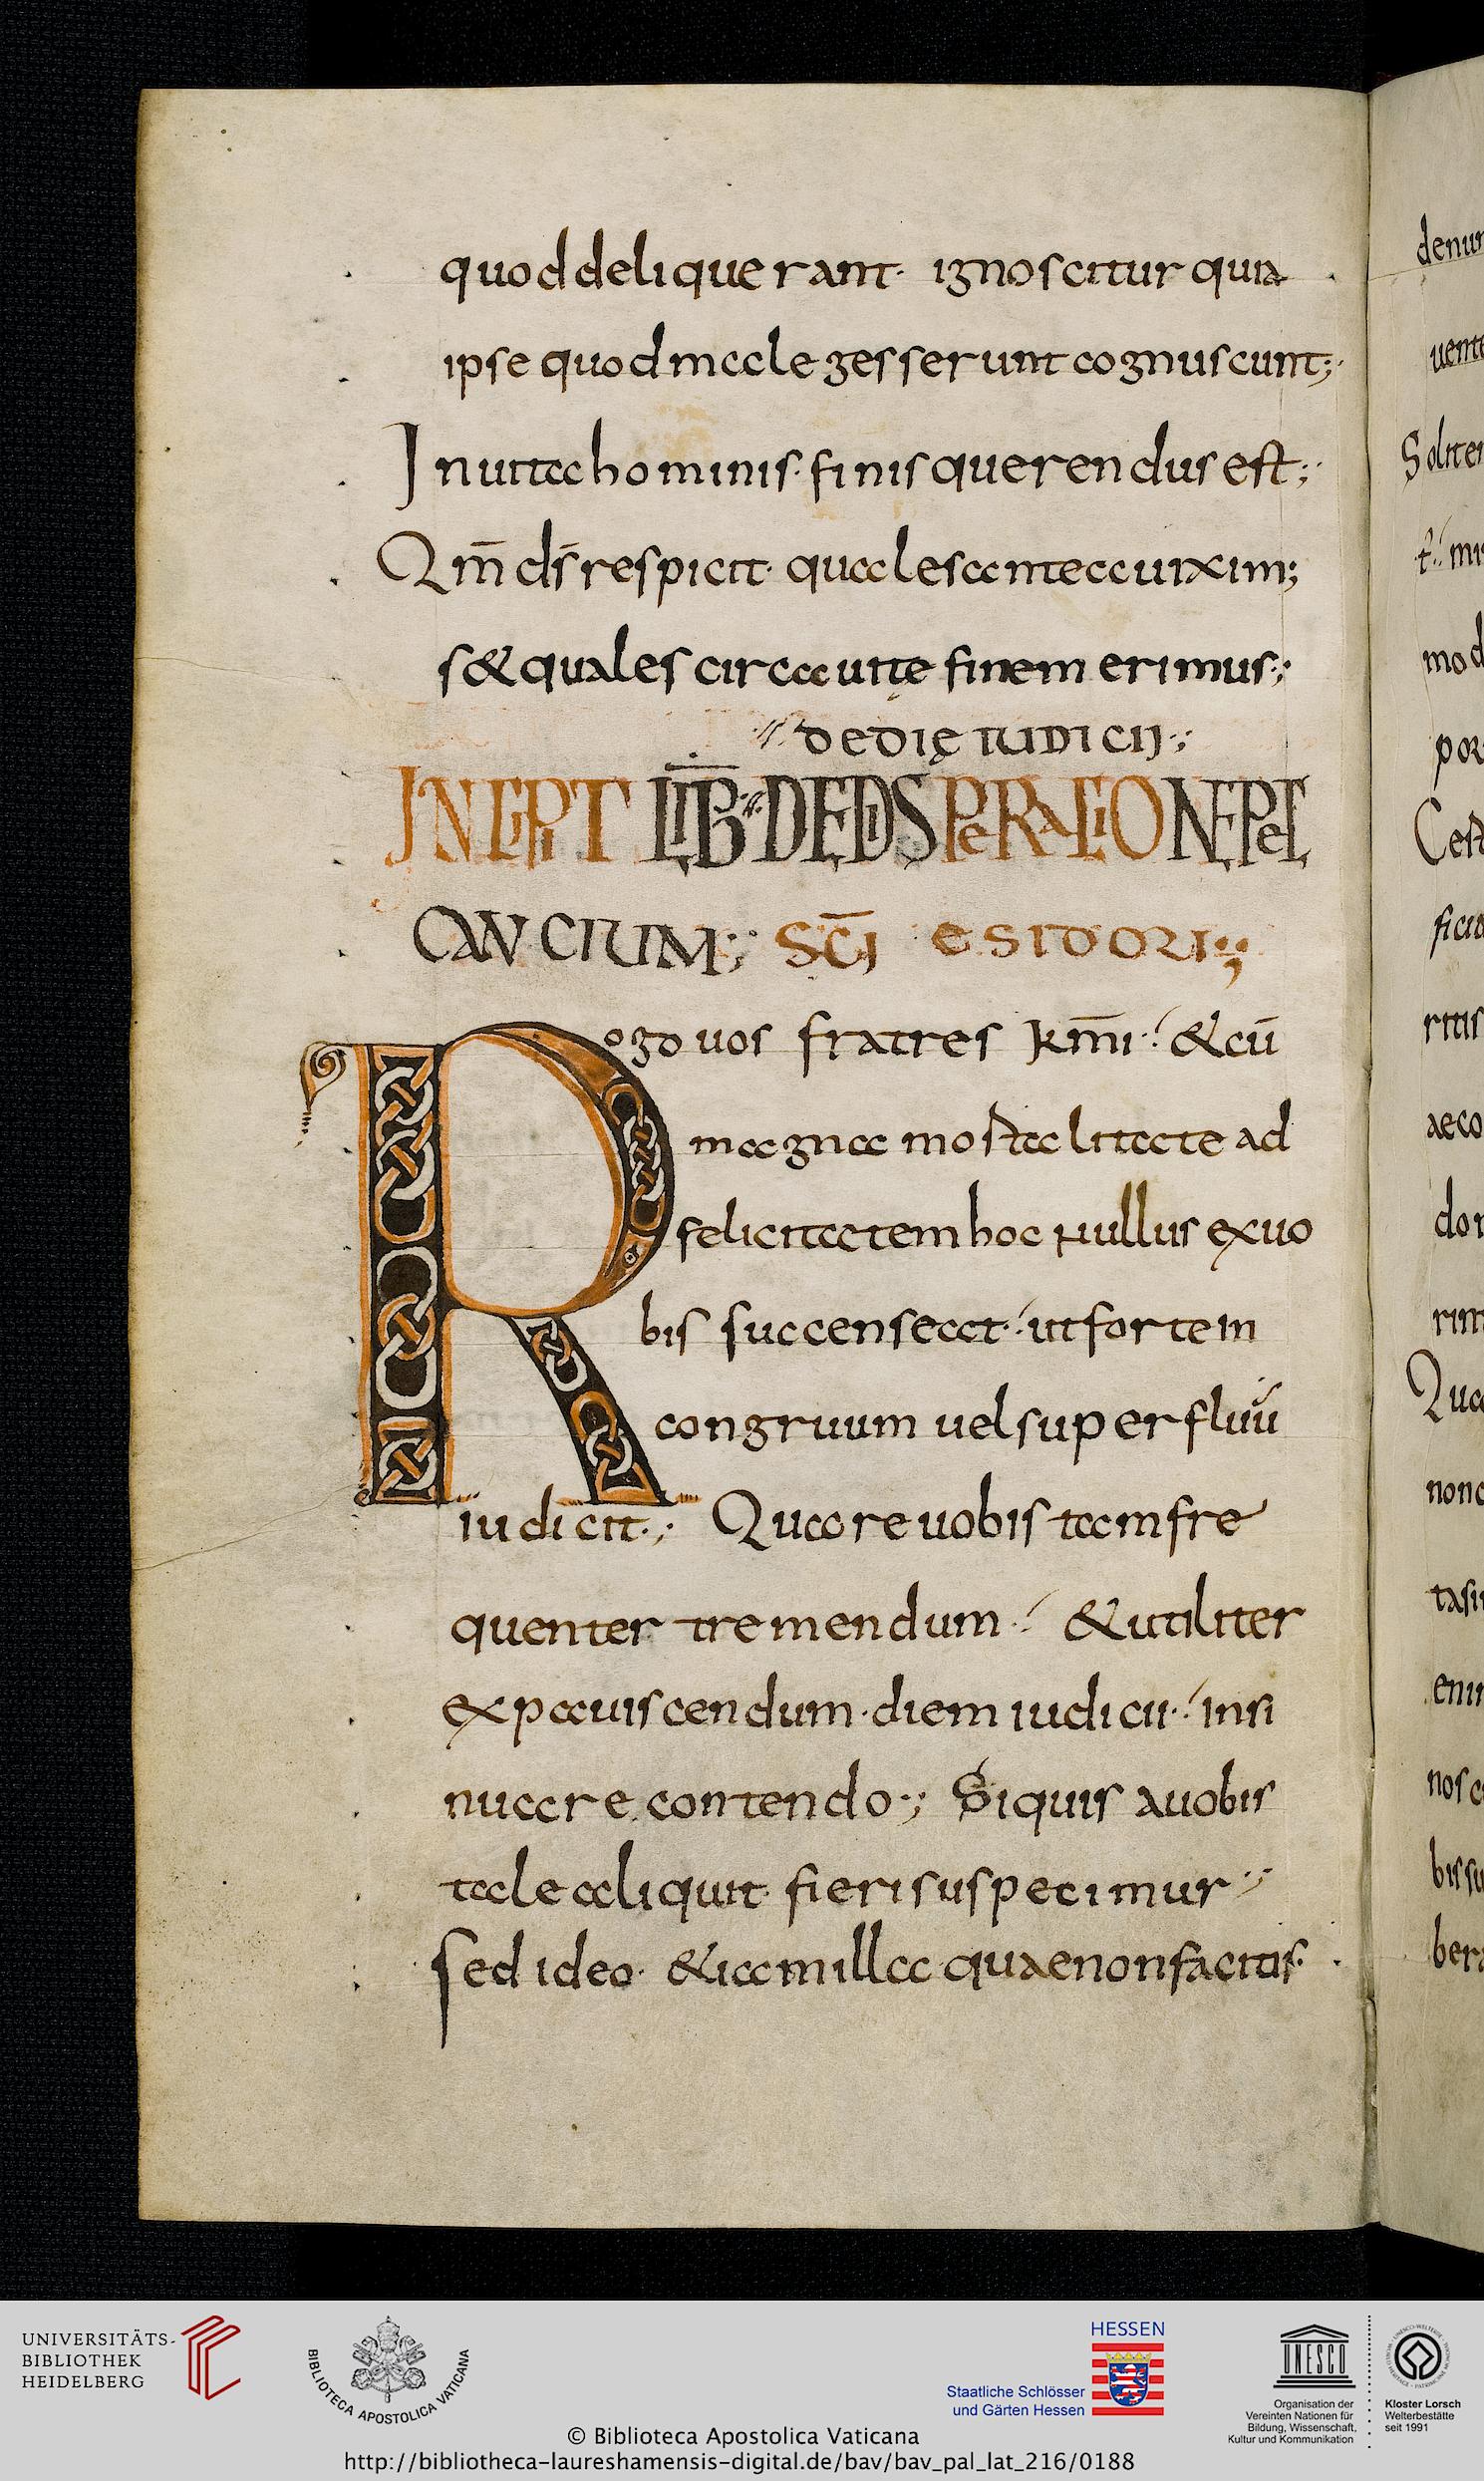 quod deliquerant· ignoscitur quia
ipse quod male gesserunt cognuscunt;
In uita hominis· finis querendus est;
Qm̄ ds̄ respicit· quales antea uixim;
s & quales circa uitę finem erimus;
de dię iudicij;
INCIPT LIB̄ DE DISPERATIONE PEC
CANCIUM; SC̄I ESIDORI;
Rogo uos fratres km̄i & cū
magna mo stalitate ad
felicitatem hoc nullus ex uo
bis succenseat· ut fortem
congruum uel superfluū
iudicit; Quare uobis tam fre
quenter tremendum & utiliter
expauiscendum· diem iudicii· insi
nuare contendo; Si quis a uobis
tale aliquit fieri suspecimur
sed ideo· & iam illa quae non facitis·
denun
Soliter
mod
por
Cest
ficia
ritis
aeco
dor
rim
Qua
nonc
tasi
enim
nosce
bis su
bera
UNIVERSITÄTS-
BIBLIOTHEK
HEIDELBERG
BIBLIOTECA APOSTOLICA VATICANA
HESSEN
Staatliche Schlösser
und Gärten Hessen
UNESCO
Organisation der
Vereinten Nationen für
Bildung, Wissenschaft,
Kultur und Kommunikation
Kloster Lorsch
Welterbestätte
seit 1991
© Biblioteca Apostolica Vaticana
http://bibliotheca-laureshamensis-digital.de/bav/bav_pal_lat_216/0188